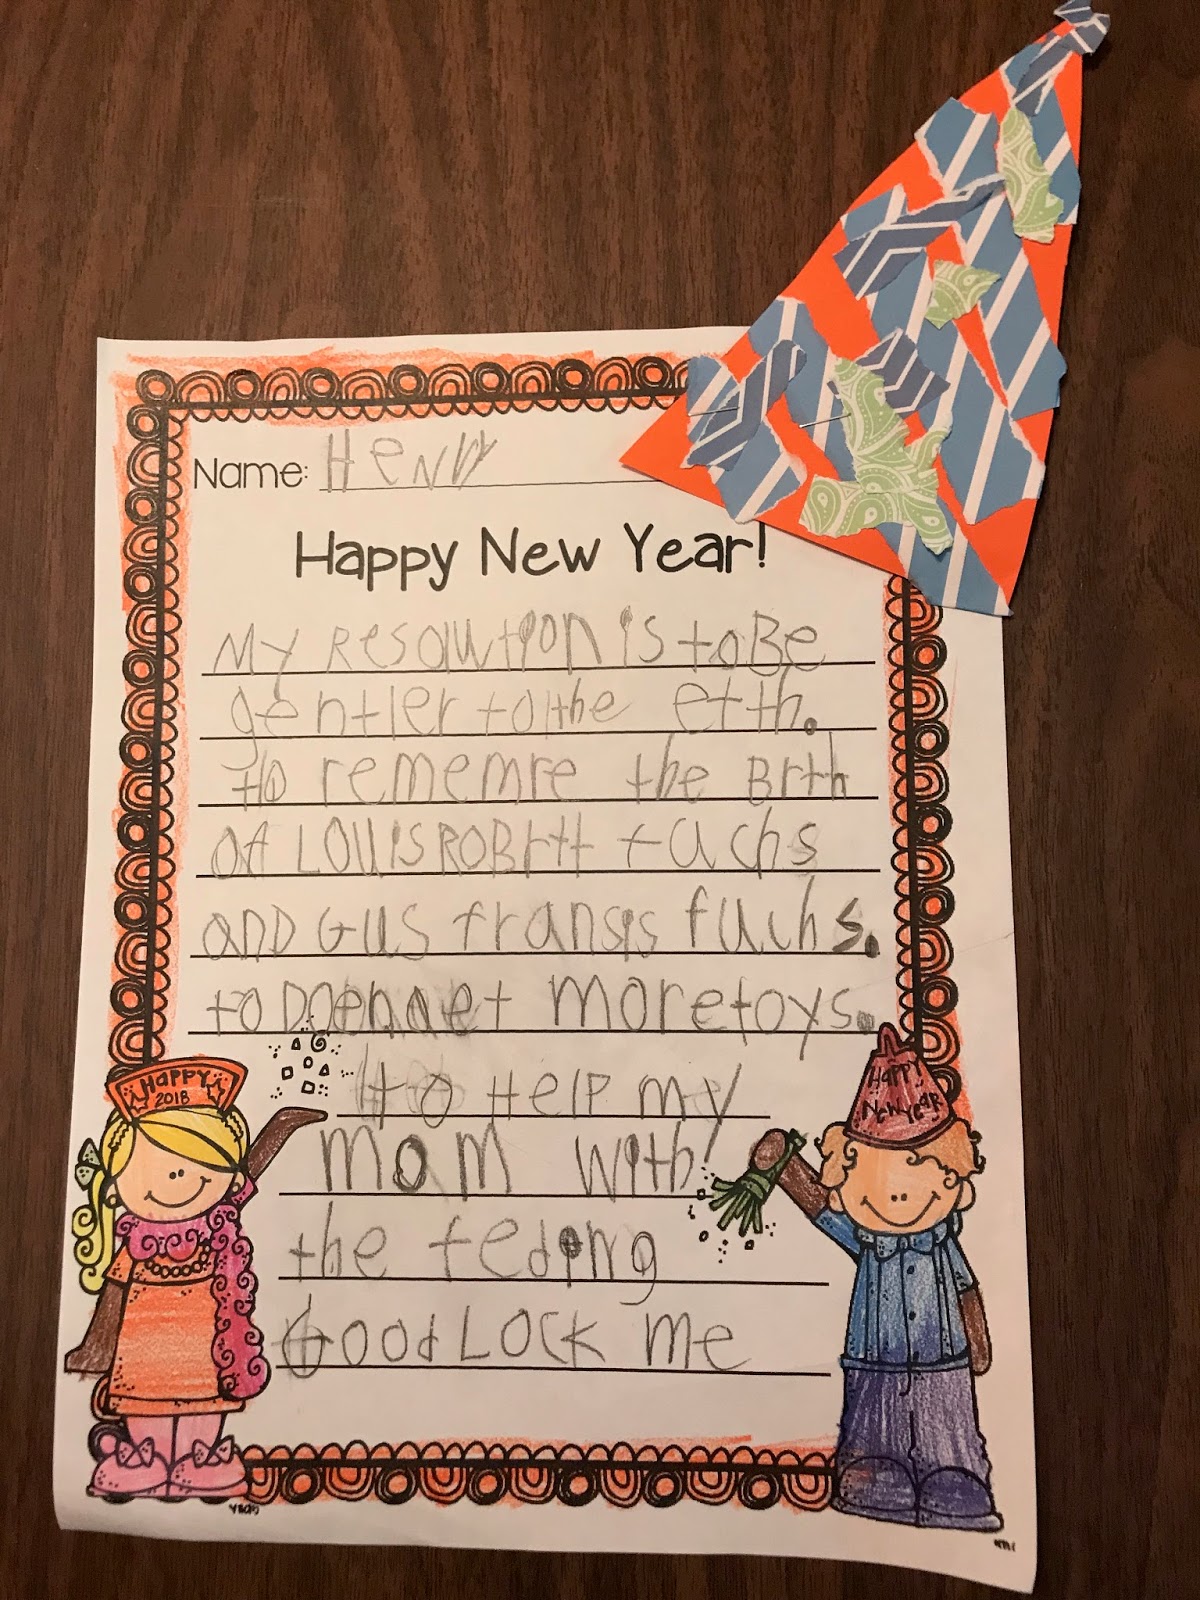 Name: Henry
Happy New Year!
My Resoulution is to Be
gentler to the etth.
to rememre the Brth
of LOUIS ROBrtt fuchs
anD Gus fransis fuchs.
to Doenaet more toys.
to Help my
mom with
the feding
Good LOCK me
Happy
2018
Happy
New Year